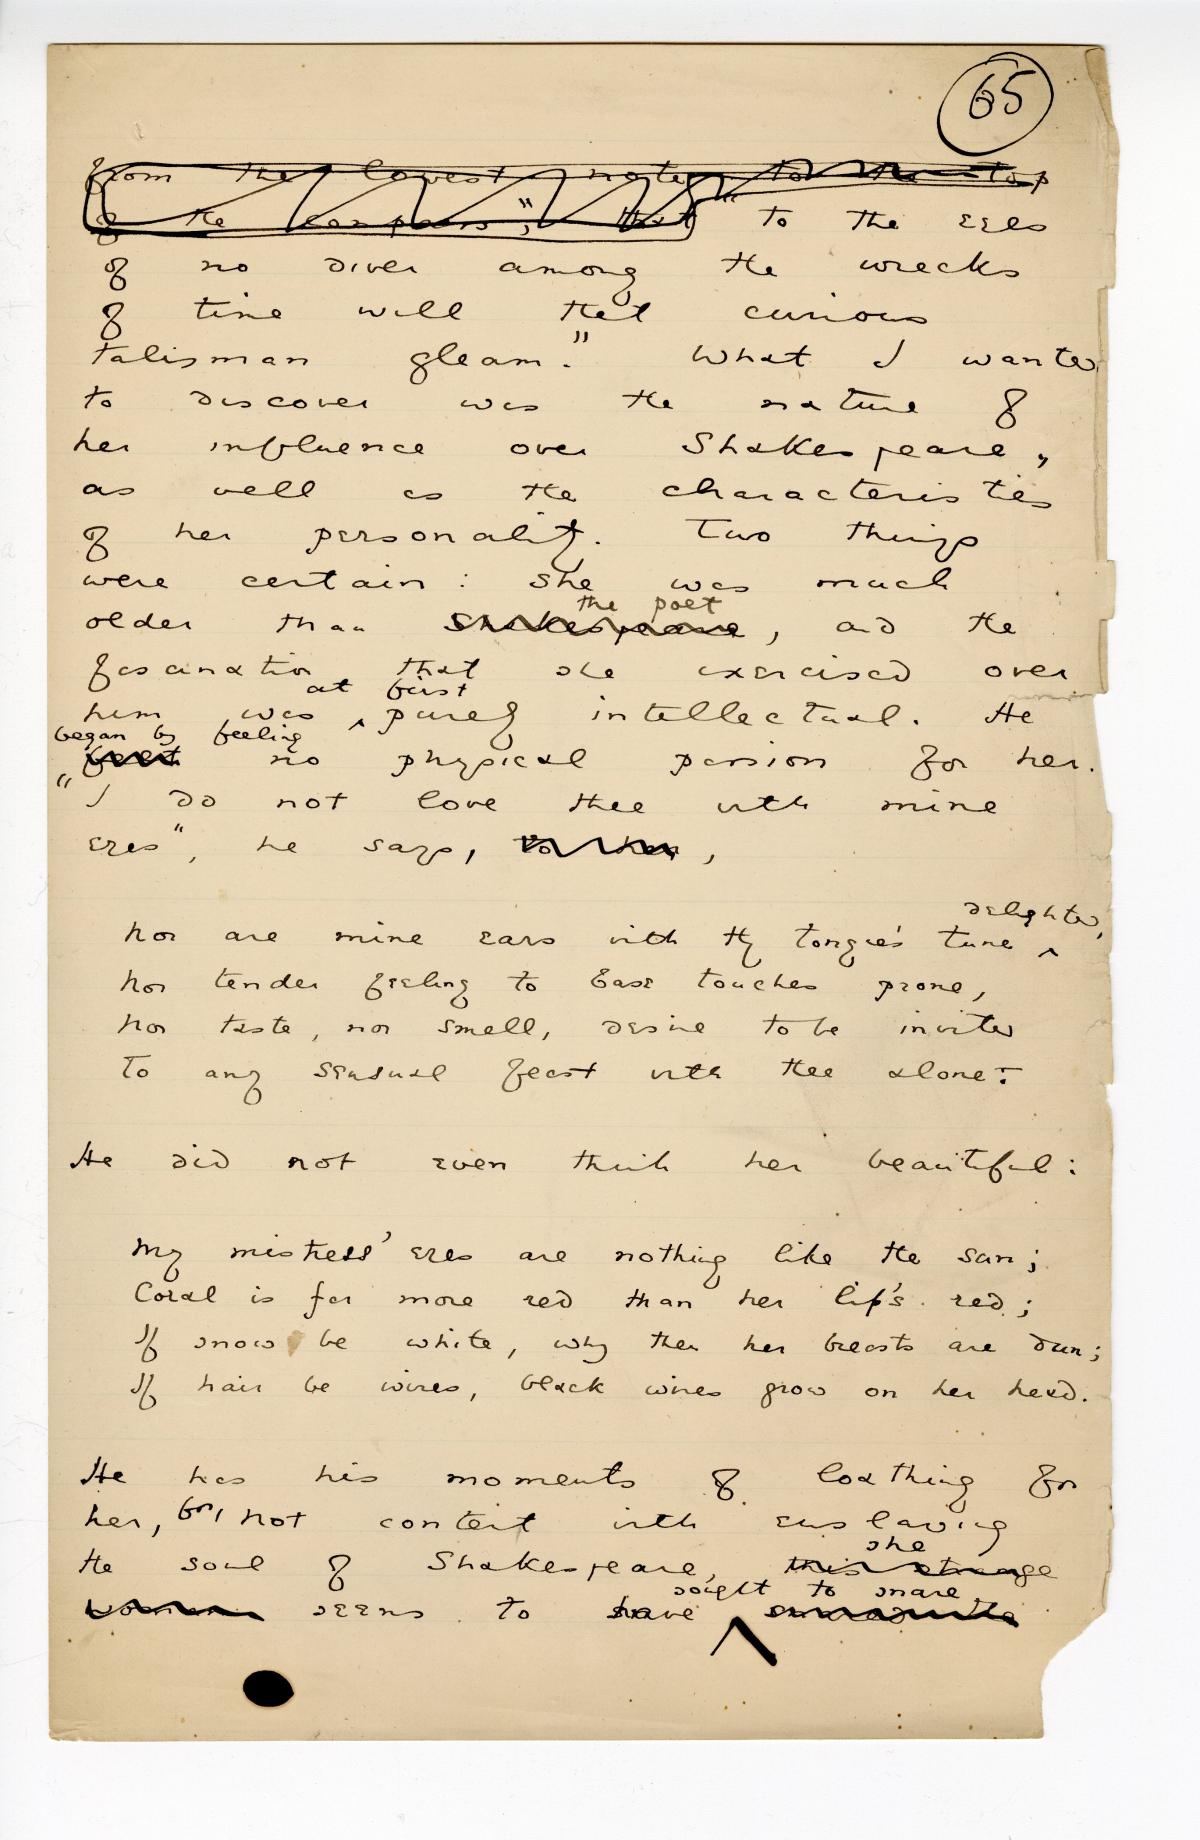 65
from the lowest note to the top
of the compass"; that "to the eyes
of no diver among the wrecks
of time will that curious
talisman gleam." What I wanted
to discover was the nature of
her influence over Shakespeare,
as well as the characteristics
of her personality. Two things
were certain: she was much
the poet
older than Shakespeare, and the
fascination that she exercised over
at first
him was ^ purely intellectual. He
began by feeling
felt no physical passion for her.
"I do not love thee with mine
eyes", he says, to her,
delighted,
Nor are mine ears with thy tongue's tune ^
Nor tender feeling to base touches prone,
Nor taste, nor smell, desire to be invited
To any sensual feast with thee alone:
He did not even think her beautiful:
My mistress' eyes are nothing like the sun;
Coral is far more red than her lip's red;
If snow be white, why then her breasts are dun;
If hair be wires, black wires grow on her head.
He has his moments of loathing for
her, for, not content with enslaving
she
the soul of Shakespeare, this strange
sought to snare
woman seems to have ^ snared the